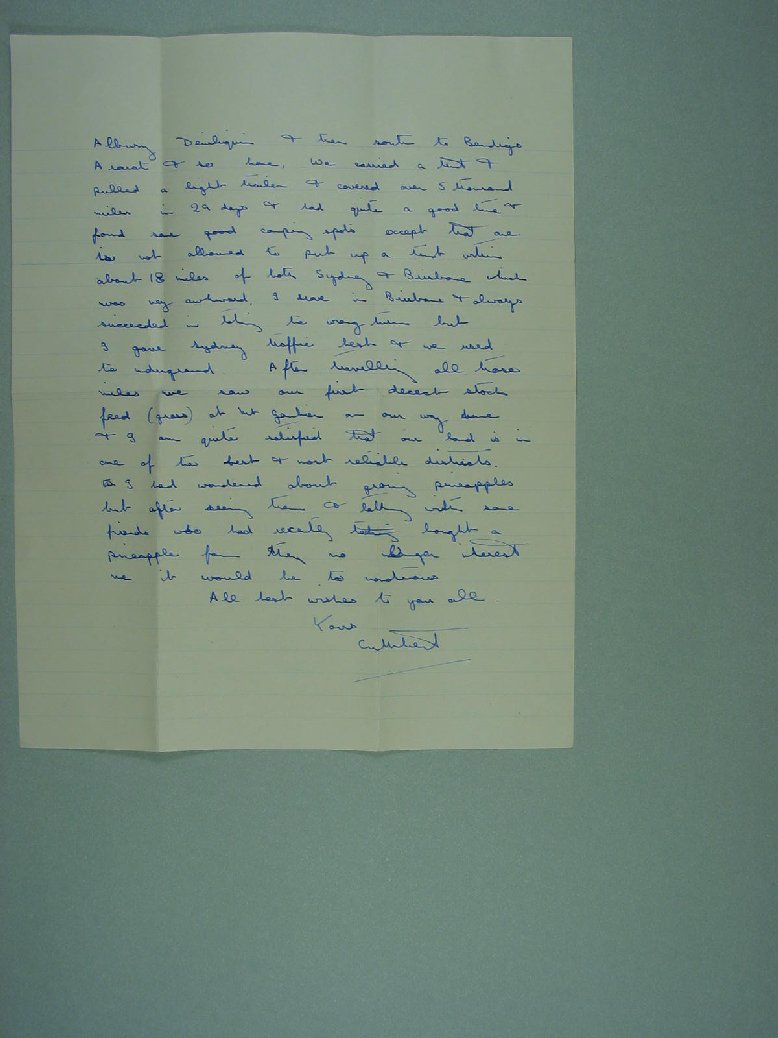 Albury Deniliquin & then south to Bendigo
Ararat & so home. We carried a tent &
pulled a light trailer & covered over 5 thousand
miles in 29 days & had quite a good time &
found some good camping spots except that one
is not allowed to put up a tent within
about 18 miles of both Sydney & Brisbane which
was very awkward. I drove in Brisbane & always
succeeded in taking the wrong turn but
I gave Sydney traffic best & we used
the underground. After travelling all those
miles we saw our first decent stock
feed (grass) at Mt Gambier on our way home
& I am quite satisfied that our land is in
one of the best & most reliable districts.
I had wondered about growing pineapples
but after seeing them & talking with some
friends who had recently bought a
pineapple farm they no longer interest
me it would be too monotonous
All best wishes to you all.
Yours
Cuthbert